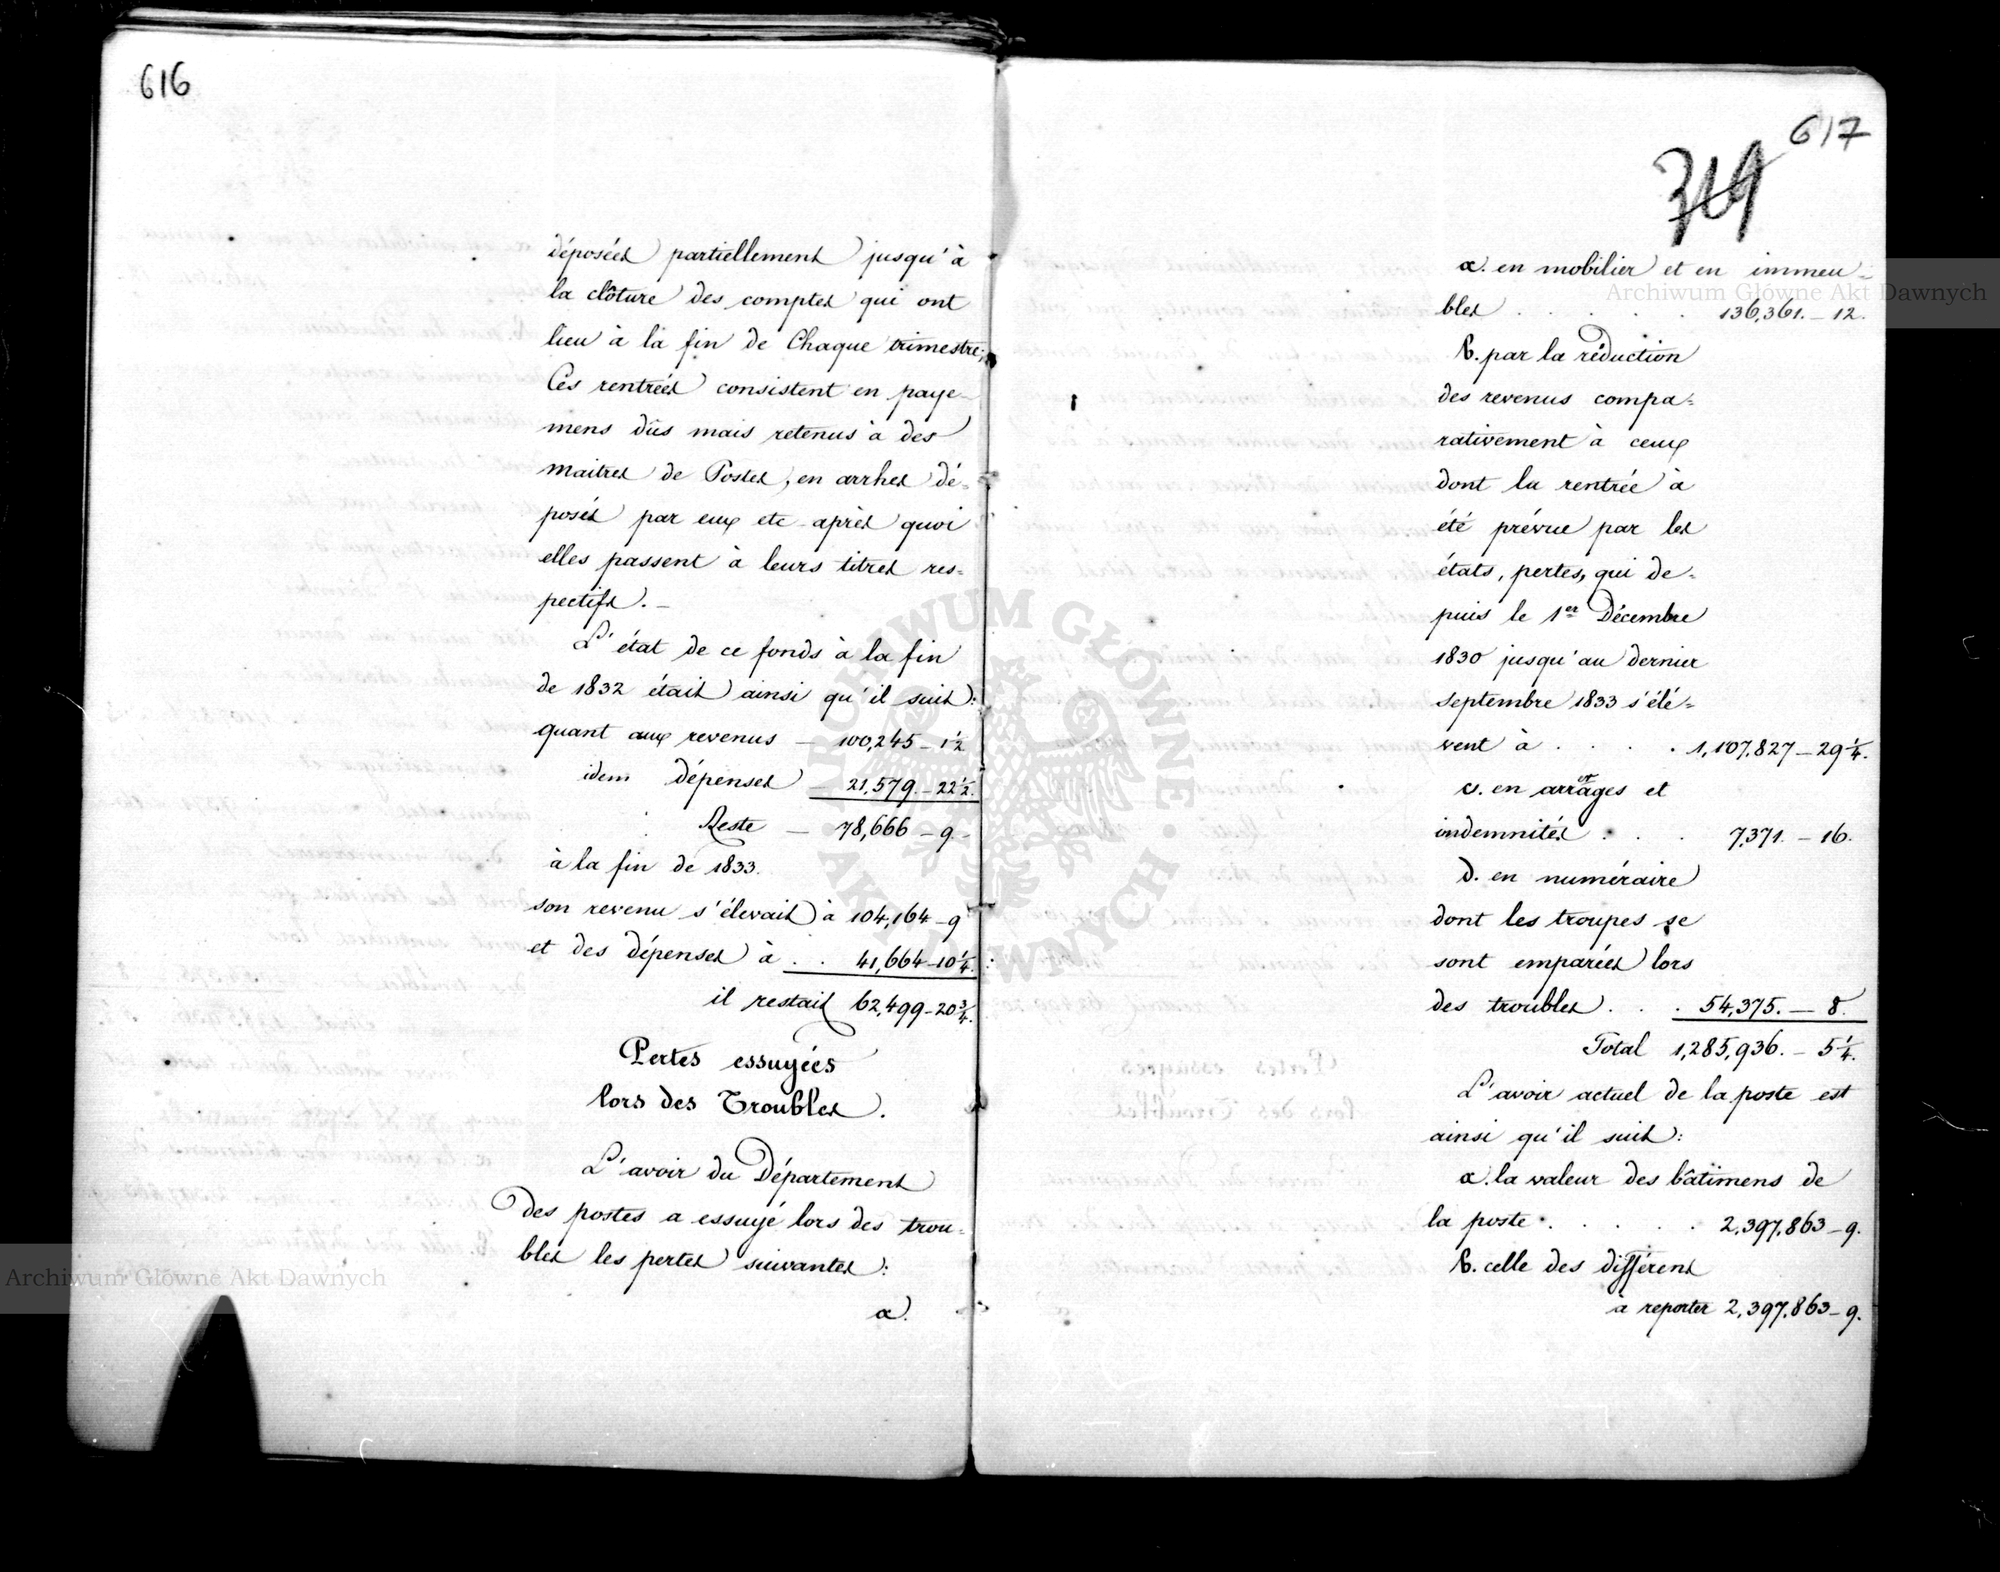 616
déposées partiellement jusqu'à
la clôture des comptes qui ont
lieu à la fin de Chaque trimestre;
Ces rentrées consistent en paye-
mens dûs mais retenus à des
maitres de Postes, en arrhes dé-
posés par eux etc après quoi
elles passent à leurs titres res-
pectifs. -
L'état de ce fonds à la fin
de 1832 était ainsi qu'il suit:
quant aux revenus — 100,245 – 1½
idem dépenses — 21,579. – 22½.
Reste — 78,666 – 9 -
à la fin de 1833.
son revenu s'élevait à 104,164 – 9
et des dépenses à . . 41,664 – 10¼.
il restait 62,499 – 20¾.
Pertes essuyées
lors des Troubles.
L'avoir du Département
des postes a essuyé lors des trou-
bles les pertes suivantes:
a.
617
319
a. en mobilier et en immeu-
bles . . . . . 136,361. – 12.
b. par la réduction
des revenus compa-
rativement à ceux
dont la rentrée à
été prévue par les
états, pertes, qui de-
puis le 1er Décembre
1830 jusqu'au dernier
septembre 1833 s'élé-
vent à . . . . 1,107,827 – 29¼.
c. en arrérages et
indemnités . . . 7,371. – 16.
d. en numéraire
dont les troupes se
sont emparées lors
des troubles . . . 54,375. — 8.
Total 1,285,936. – 5¼.
L'avoir actuel de la poste est
ainsi qu'il suit:
a. la valeur des bâtimens de
la poste . . . . . 2,397,863 – 9.
b. celle des différens
à reporter 2,397,863 – 9.
Archiwum Główne Akt Dawnych
Archiwum Główne Akt Dawnych
ARCHIWUM GŁÓWNE · AKT DAWNYCH ·